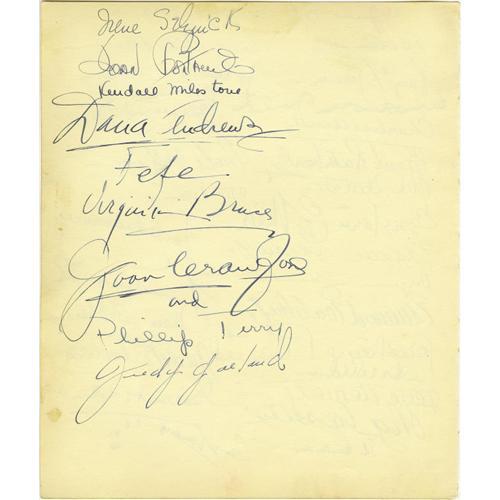 Irene Selznick
Joan Fontaine
Kendall Milestone
Dana Andrews
Fefe
Virginia Bruce
Joan Crawford
and
Phillip Terry
Judy Garland